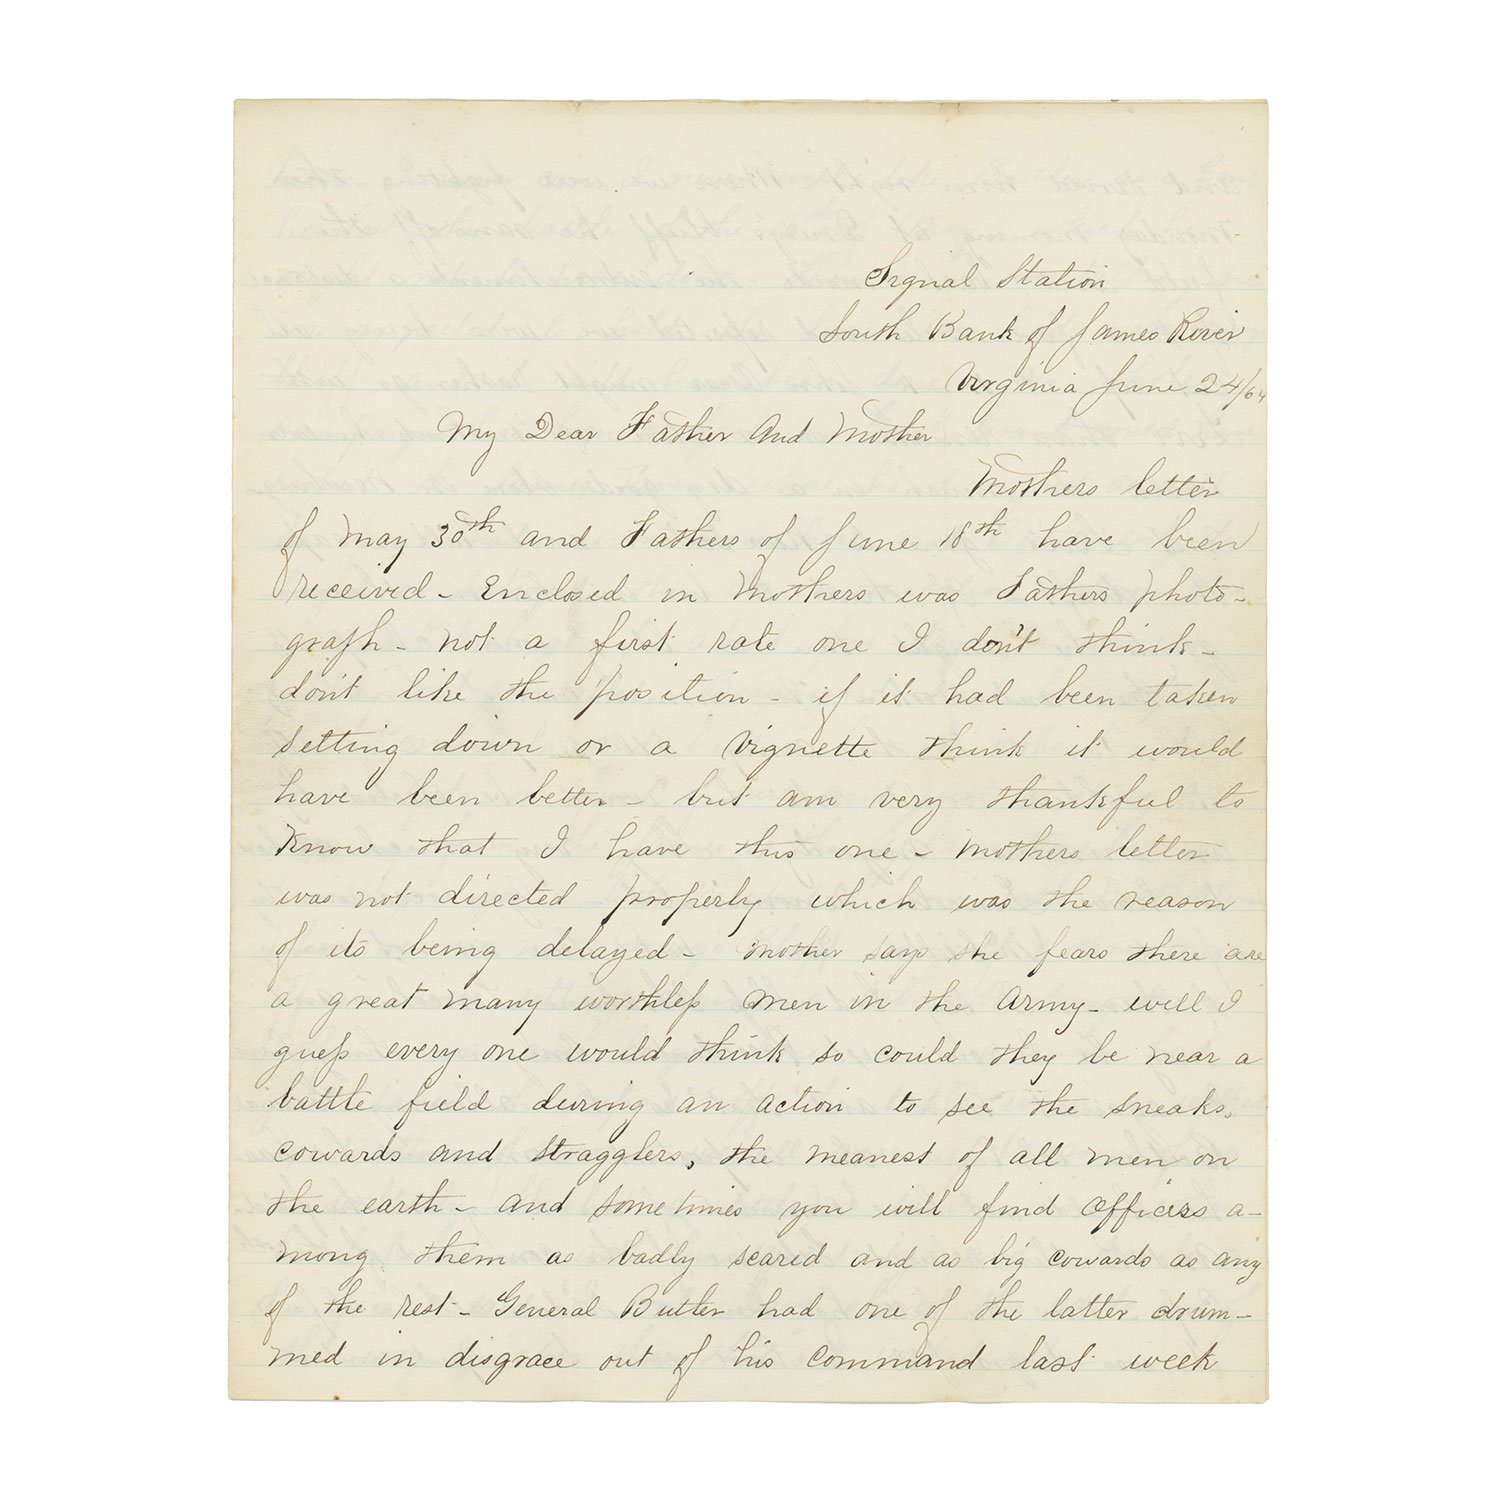 Signal Station
South Bank of James River
Virginia June 24/64
My Dear Father And Mother
Mothers letter
of May 30th and Fathers of June 18th have been
received - Enclosed in Mothers was Fathers photo-
graph - not a first rate one I don't think -
don't like the position - if it had been taken
setting down or a Vignette think it would
have been better - but am very thankful to
know that I have this one - Mothers letter
was not directed properly which was the reason
of its being delayed - Mother says she fears there are
a great many worthless men in the Army - well I
guess every one would think so could they be near a
battle field during an action to see the sneaks,
cowards and stragglers, the meanest of all men on
the earth - and sometimes you will find Officers a-
mong them as badly scared and as big cowards as any
of the rest - General Butler had one of the latter drum-
med in disgrace out of his command last week